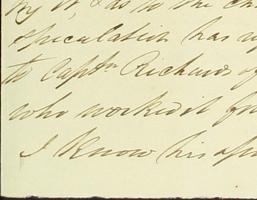 by it, & as to the
speculation has
to Captn Richards of
who worked it for
I know his